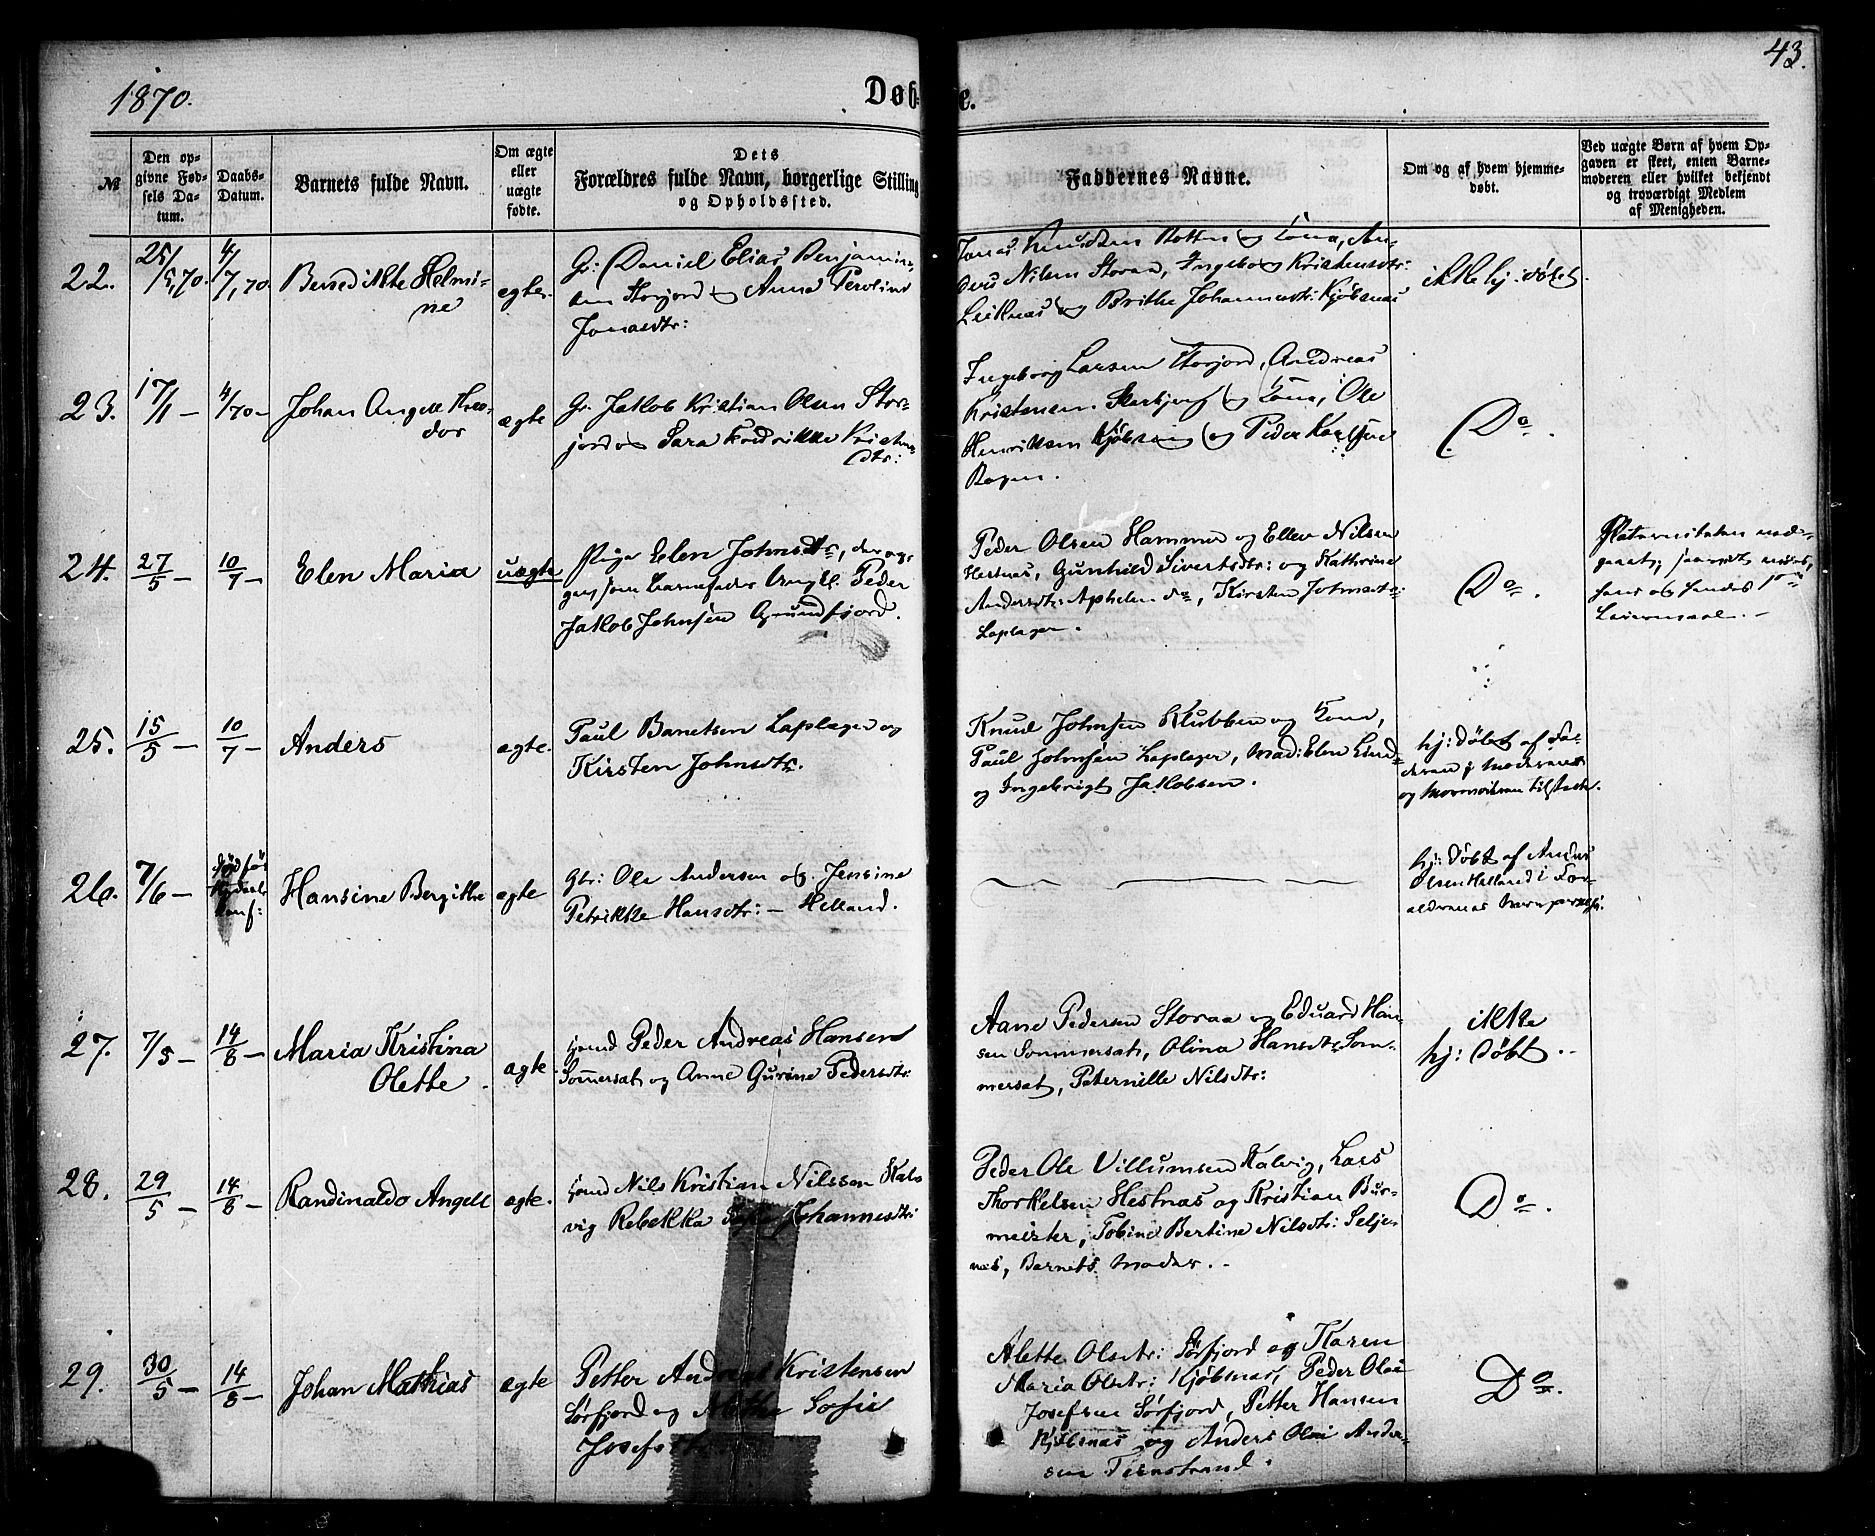 1870.
Døb-
e.
43.
№
Den op-
givne Fød-
sels Da-
tum.
Daabs-
Datum.
Barnets fulde Navn.
Om ægte
eller
uægte
fødte.
Dets
Forældres fulde Navn, borgerlige Stilling
og Opholdssted.
Faddernes Navne.
Om og af hvem hjemme-
døbt.
Ved uægte Børn af hvem Op-
gaven er skeet, enten Barne-
moderen eller hvilket bekjendt
og troværdigt Medlem
af Menigheden.
22.
25/5,70.
4/7,70
Benedikte Helmi-
ne
ægte.
Gr: Daniel Elias Benjamin-
sen Storjord og Anna Peroline
Jonasdtr:
Jonas Knudsen og Kona, An-
Nilsen Storaa, Ingeborg Kristensdtr:
Leiknæs og Brithe Johannesdtr: Kjøbsnæs
ikke hj. døbt.
23.
17/1 -
4/70 -
Johan Angell Theo-
dor
ægte
Gr. Jakob Kristian Olsen Stor-
jord og Sara Fredrikke Kristens
dtr:
Ingeborg Larsen Storjord, Andreas
Kristensen og Kona, Ole
Henriksen Kjøbsnæs og Peder
Bogen.
Do.
24.
27/5 -
10/7 -
Elen Maria
uægte
Pige Elen Johnsdtr, der op-
gav som Barnefader Ungk. Peder
Jakob Johnsen Grundfjord.
Peder Olsen Hammer og Ellen Nilsen
Hestnæs, Gunhild Sivertsdtr: og Kathrine
Andersdtr: do, Kirsten Johnsdtr:
Laplager.
Do.
hans og hendes 1ste
Leiermaal. -
25.
15/5 -
10/7 -
Anders
ægte.
Paul Banetsen Laplager og
Kirsten Johnsdtr.
Knud Johnsen Klubben og Kone,
Paul Johnsen Laplager, Mad: Elen Lind
og Ingebrigt Jakobsen.
hj: døbt af Fa-
deren i Moderens
og tilstede.
26.
7/6 -
Død før
Hansine Bergithe
ægte
Gbr: Ole Andersen og Jensine
Petrikke Hansdtr: - Helland.
hj: døbt af Anders
Olsen Helland i For-
ældrenes Nærværelse.
27.
7/5 -
14/8 -
Maria Kristina
Olette.
ægte.
Gmd Peder Andreas Hansen
Sommersæt og Anne Gurine Pedersdtr:
Aane Pedersen Storaa og Eduard Han-
sen Sommersæt, Olina Hansdtr Som-
mersæt, Peternille Nilsdtr:
ikke
hj: døbt.
28.
29/5 -
14/8 -
Randinaldo Angell
ægte.
Gmd Nils Kristian Nilssen Kal-
vig Rebekka Johannesdtr:
Peder Ole Villumsen Kalvig, Lars
Thorkelsen Hestnæs og Kristian Bur-
meister, Tobine Bertine Nilsdtr: Selje-
næs, Barnets Moder.
Do.
29.
30/5 -
14/8 -
Johan Mathias
ægte
Petter Andreas Kristensen
Sørfjord og Sofie
Josefsdtr
Alette Olsdtr: Sørfjord og Karen
Maria Olsdtr: Kjøbsnæs, Peder Olai
Josefsen Sørfjord, Petter Hansen
Kjøbsnæs og Anders Olai Ander-
sen Ternstrand.
Do.